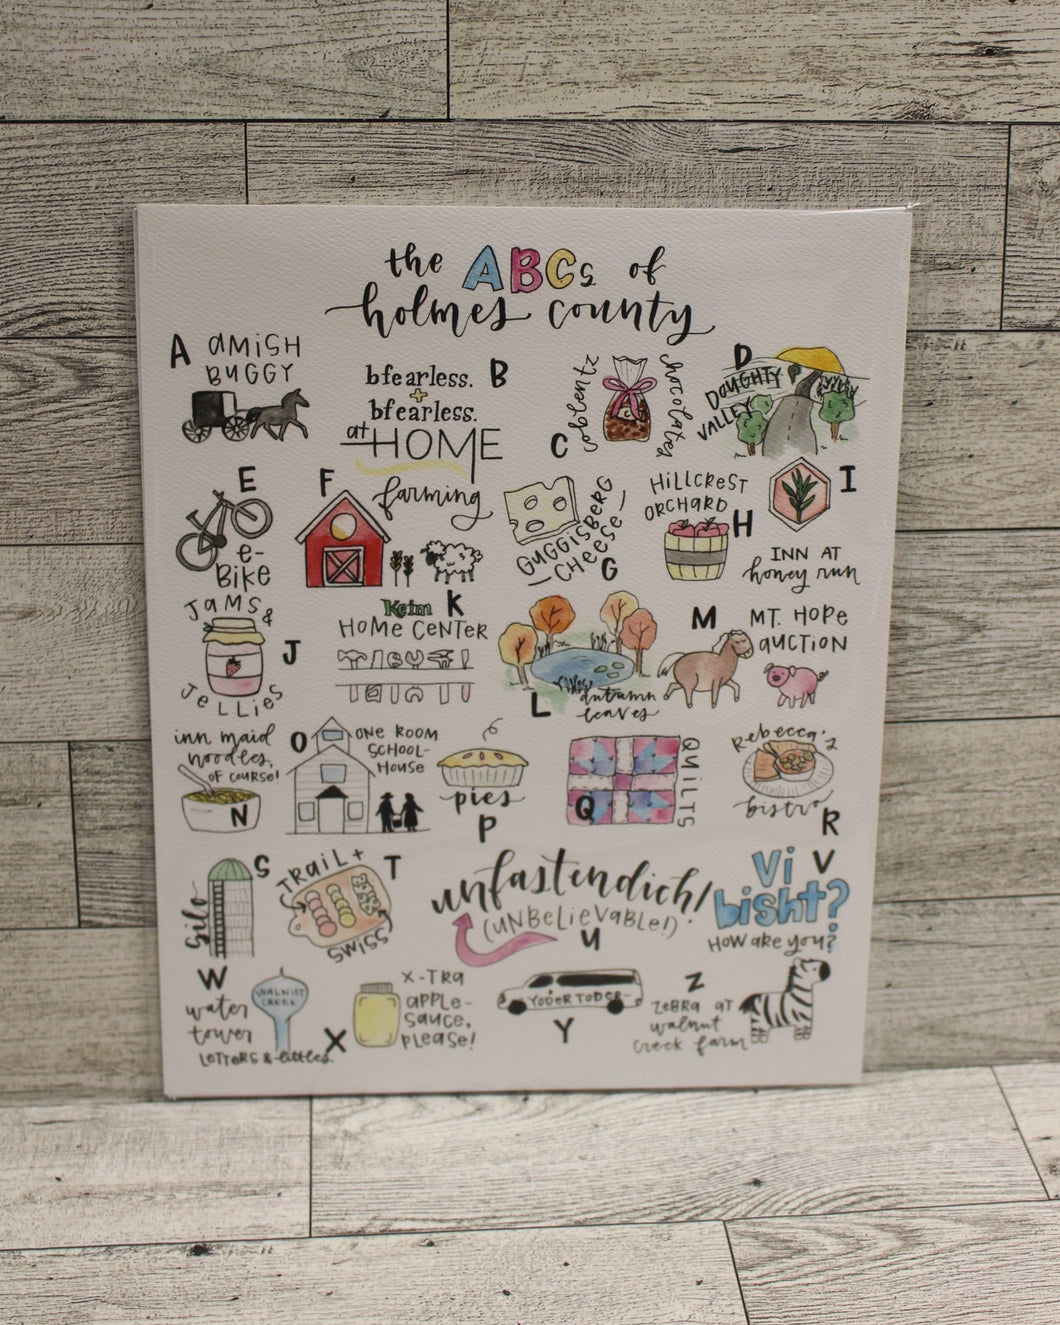 the ABCs of
holmes county
A AMISH
BUGGY
bfearless. B
+
bfearless.
at HOME
C coblentz chocolates
D
DOUGHTY
VALLEY
E
e-
Bike
F farming
GUGGISBERG
CHEESE
G
HILLCREST
ORCHARD
H
I
INN AT
honey run
JAMS &
J
JELLIES
Keim K
HOME CENTER
L autumn
leaves
M MT. HOPE
AUCTION
inn maid
noodles,
OF COURSE!
N
O ONE ROOM
SCHOOL-
HOUSE
pies
P
Q QUILTS
Rebecca's
bistro
R
S
Silo
TRAIL + T
SWISS
unfastendich!
(UNBELIEVABLE!)
U
Vi V
bisht?
HOW are you?
W
water
tower
WALNUT
CREEK
X X-TRA
APPLE-
SAUCE,
PLEASE!
YODER TODER
Y
Z
ZEBRA AT
walnut
creek farm
LETTERS & littles